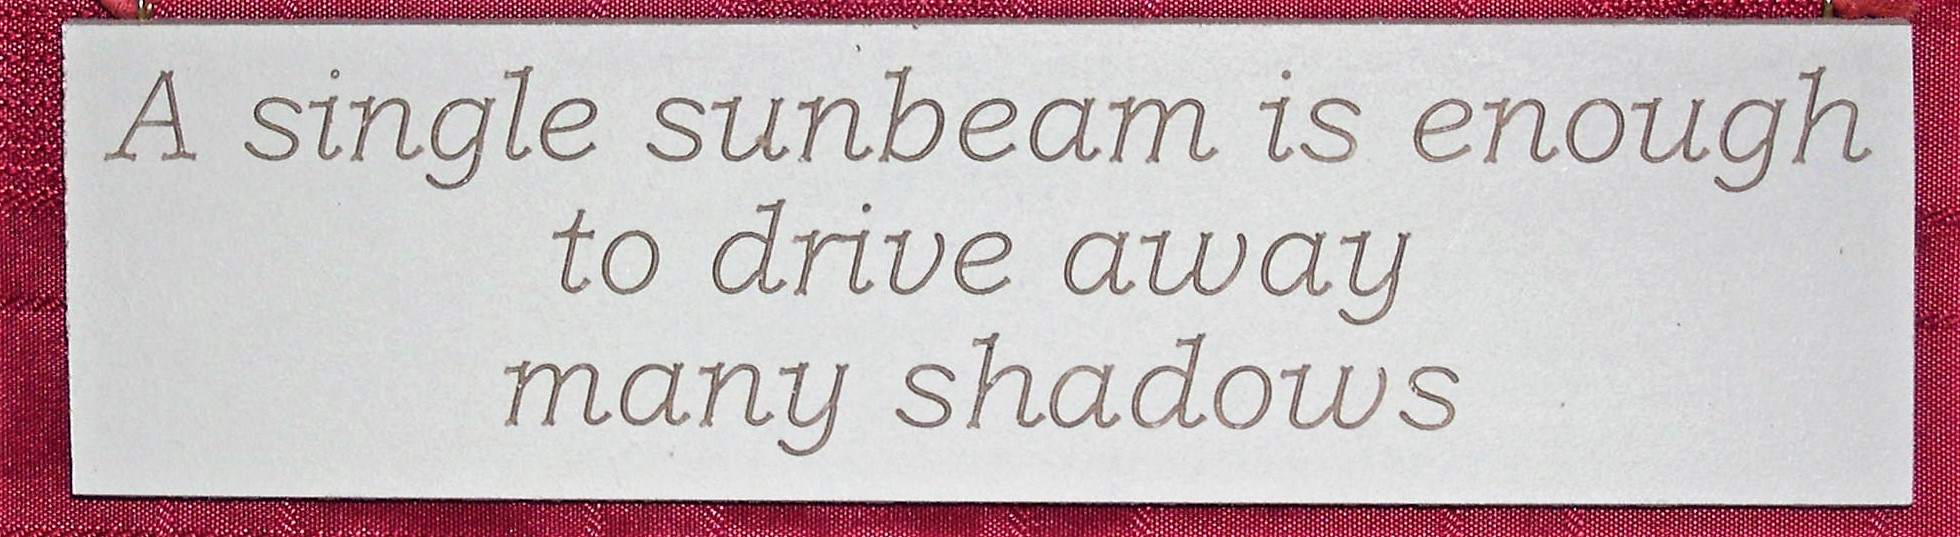 A single sunbeam is enough
to drive away
many shadows